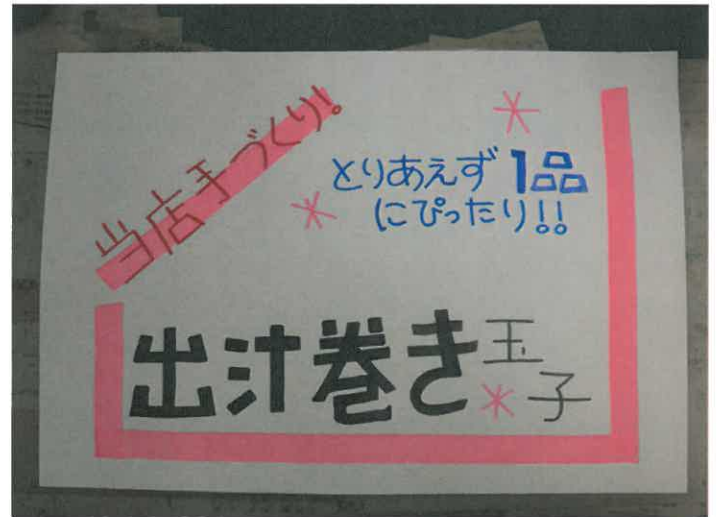 当店手づくり!
とりあえず1品
にぴったり!!
出汁巻き玉子